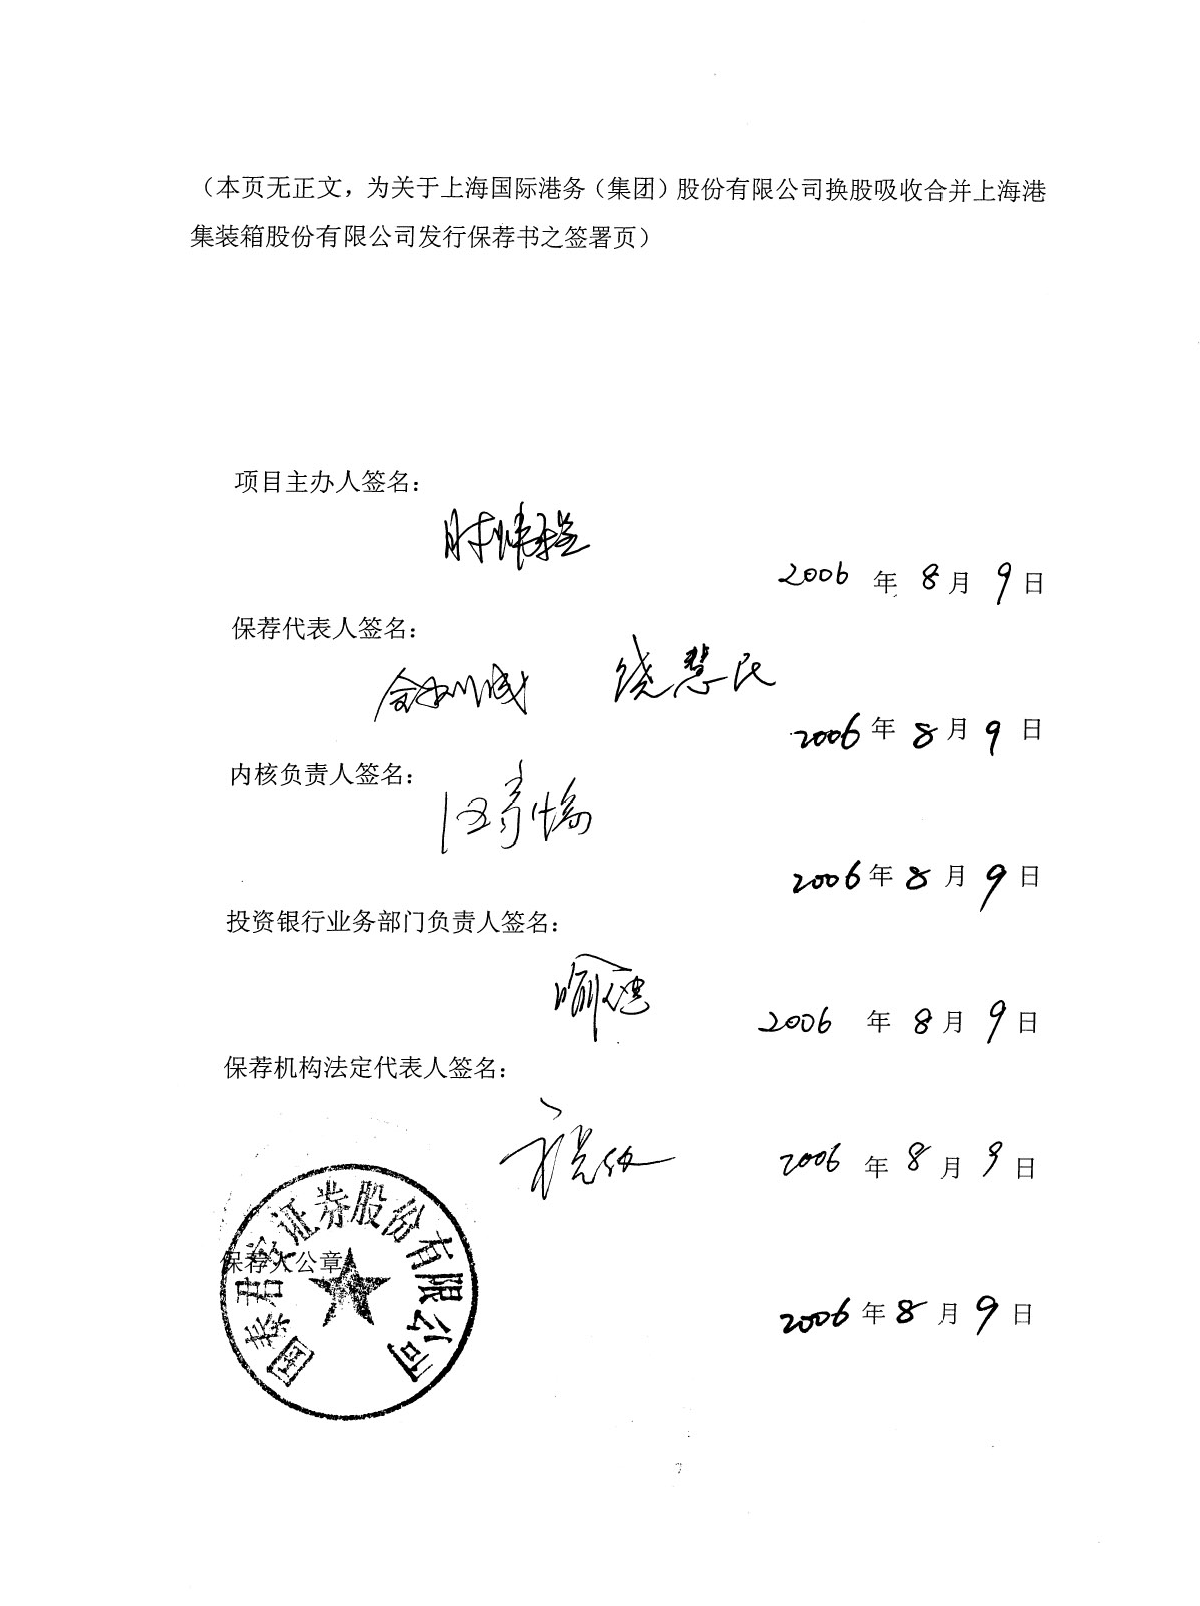 （本页无正文，为关于上海国际港务（集团）股份有限公司换股吸收合并上海港
集装箱股份有限公司发行保荐书之签署页）
项目主办人签名：
2006 年 8 月 9 日
保荐代表人签名：
饶慧民
2006 年 8 月 9 日
内核负责人签名：
2006 年 8 月 9 日
投资银行业务部门负责人签名：
喻健
2006 年 8 月 9 日
保荐机构法定代表人签名：
2006 年 8 月 9 日
国泰君安证券股份有限公司
保荐人公章
2006 年 8 月 9 日
7